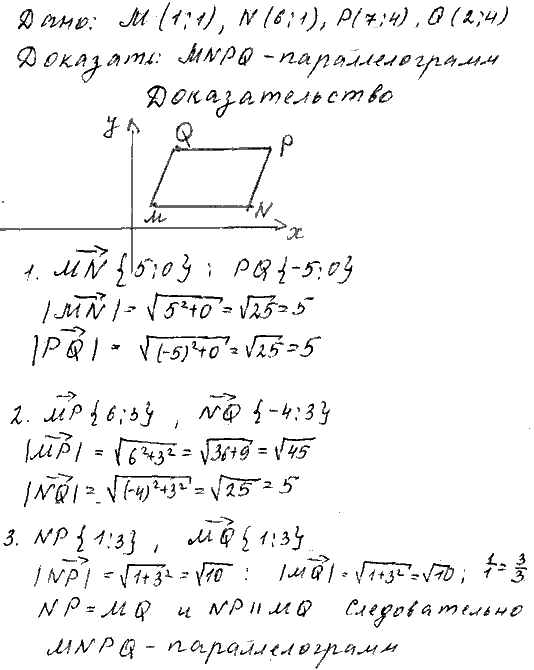 Дано: M(1;1), N(6;1), P(7;4), Q(2;4)
Доказать: MNPQ - параллелограмм
Доказательство
y
Q
P
M
N
x
1. MN {5;0} ; PQ {-5;0}
|MN| = √5²+0 = √25 = 5
|PQ| = √(-5)²+0 = √25 = 5
2. MP {6;3} , NQ {-4;3}
|MP| = √6²+3² = √36+9 = √45
|NQ| = √(-4)²+3² = √25 = 5
3. NP {1:3} , MQ {1;3}
|NP| = √1+3² = √10 : |MQ| = √1+3² = √10 ; 1/1 = 3/3
NP = MQ и NP || MQ Следовательно
MNPQ - параллелограмм